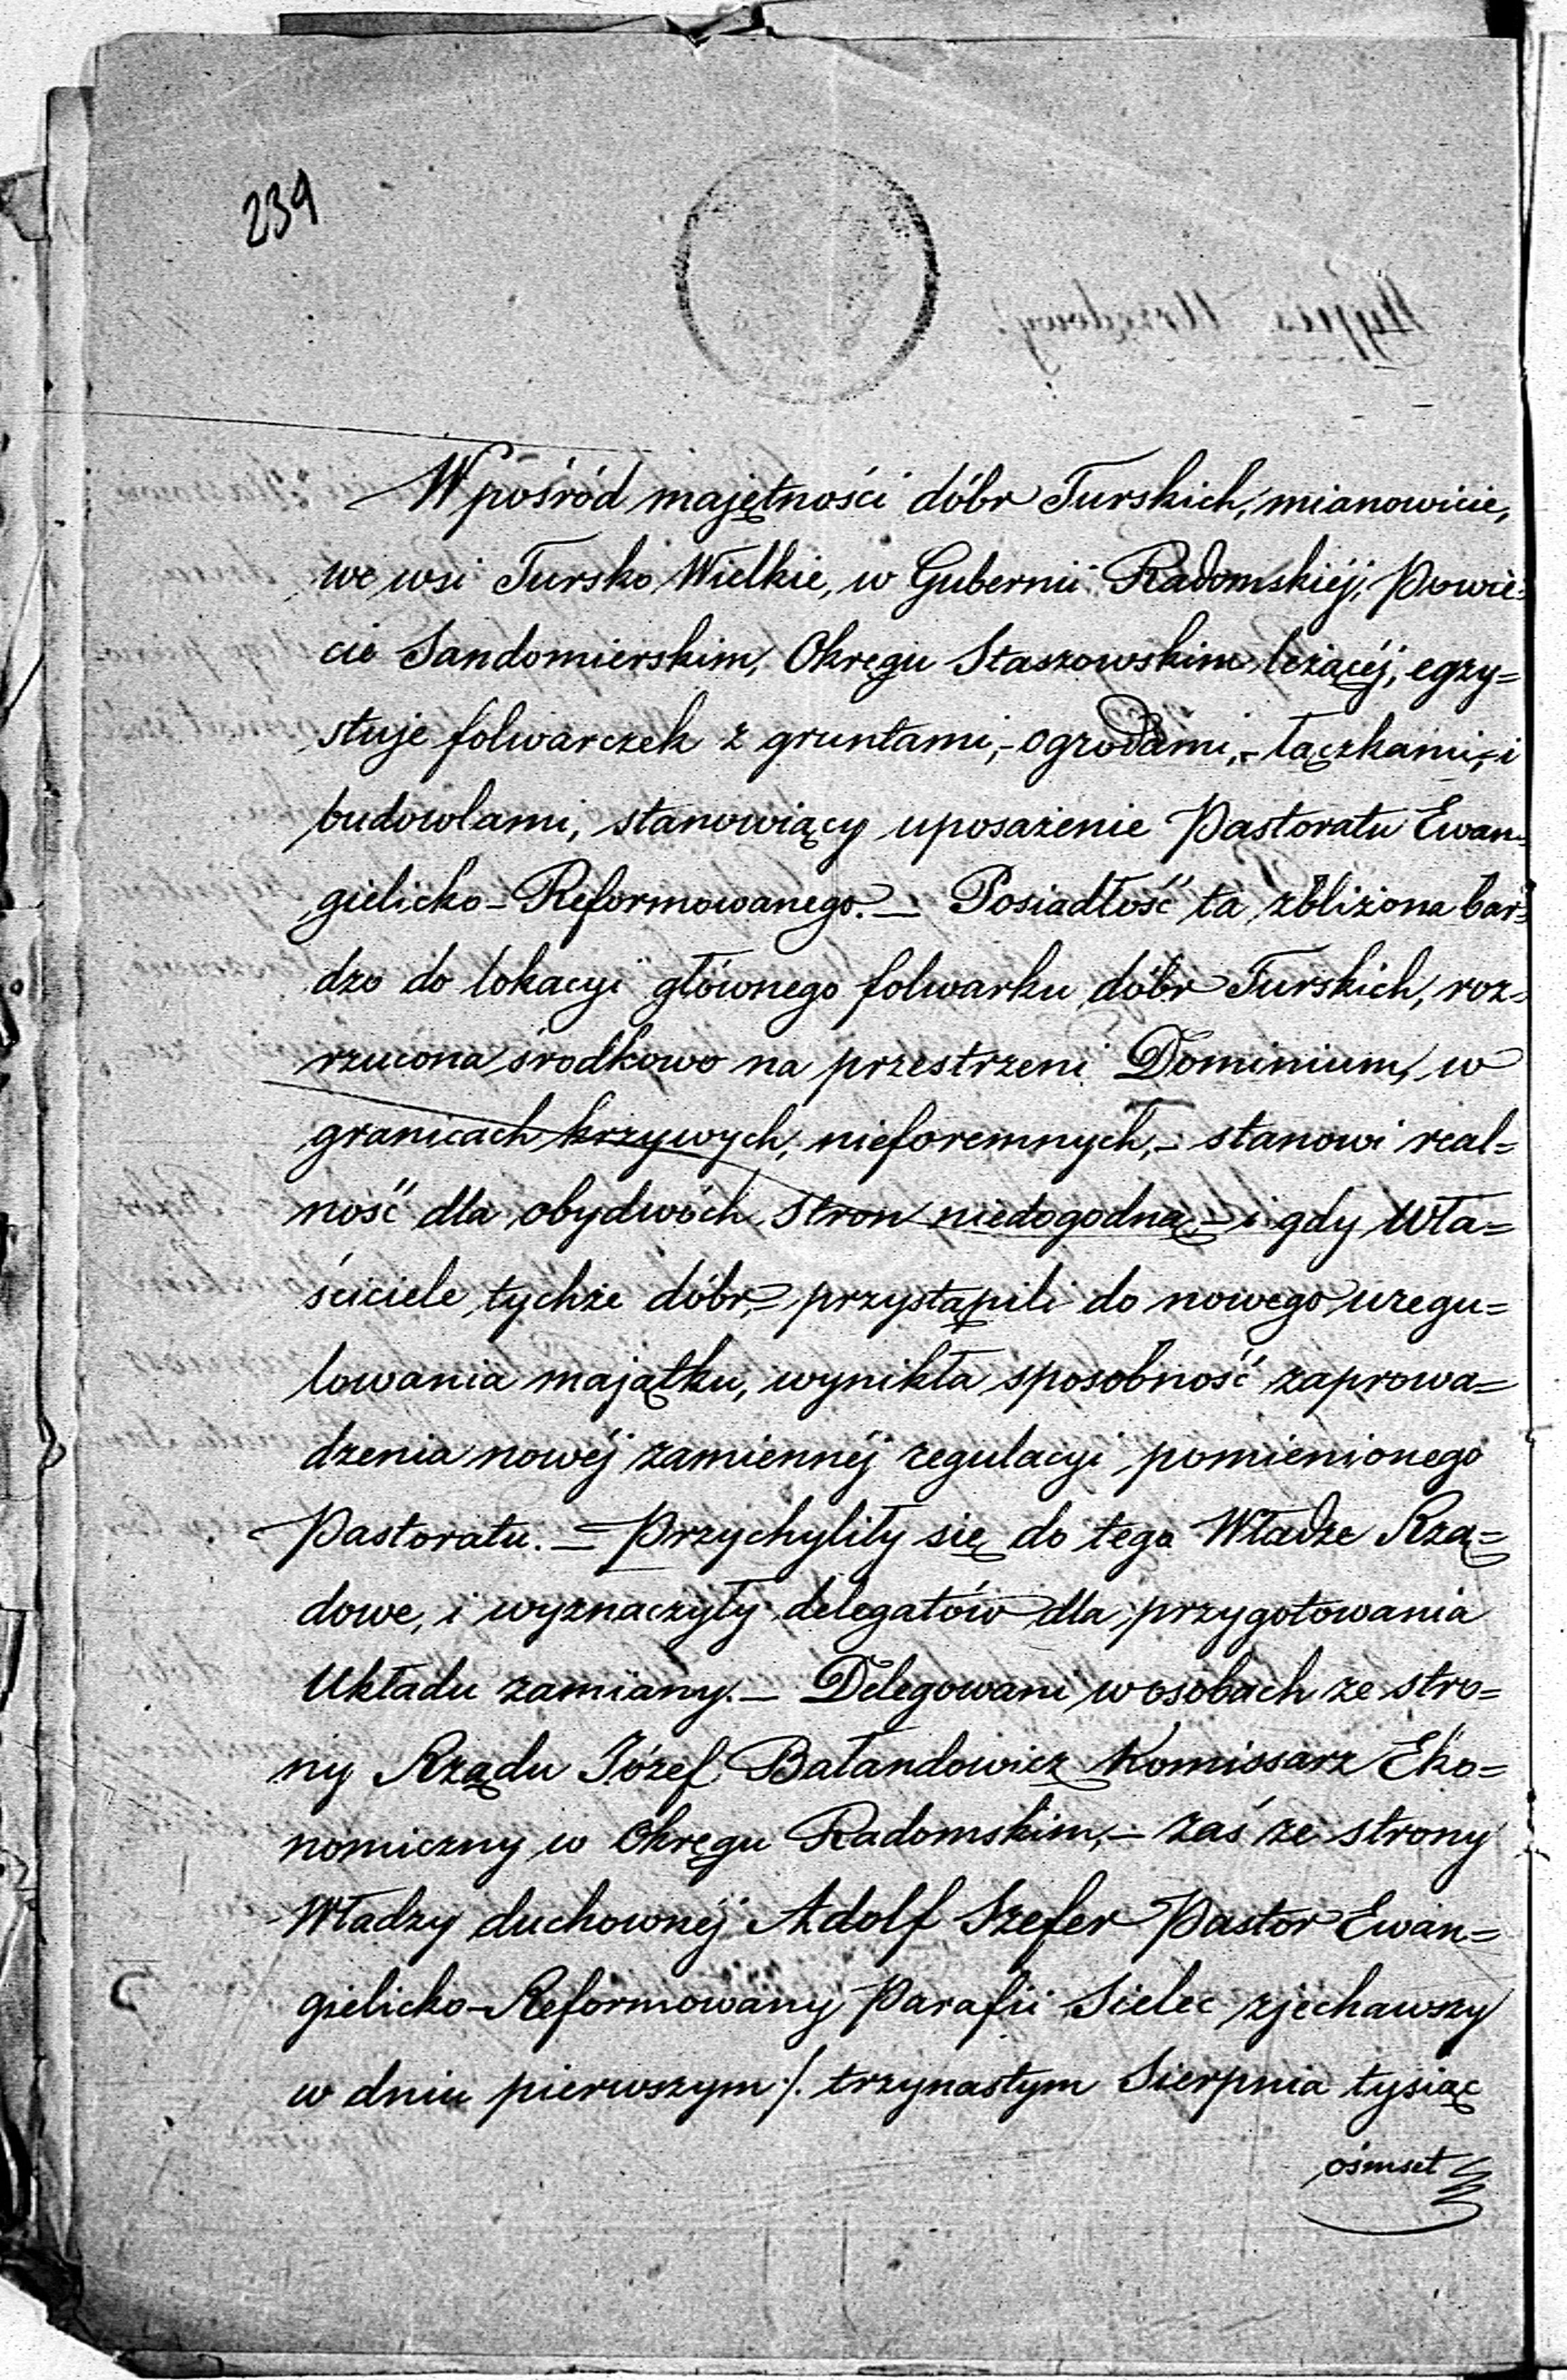 239
W pośród majętności dóbr Turskich, mianowicie,
we wsi Tursko Wielkie, w Gubernii Radomskiéj, Powie=
cie Sandomierskim, Okręgu Staszowskim leżącéj, egzy=
stuje folwarczek z gruntami,- ogrodami,- łączkami,- i
budowlami, stanowiący uposażenie Pastoratu Ewan=
gielicko-Reformowanego.— Posiadłość ta zbliżona bar=
dzo do lokacyi głównego folwarku dóbr Turskich, roz=
rzucona środkowo na przestrzeni Dominium, w
granicach krzywych, nieforemnych,- stanowi real=
ność dla obydwóch stron niedogodną,- i gdy Wła=
ściciele tychże dóbr,= przystąpili do nowego uregu=
lowania majątku, wynikła sposobność zaprowa=
dzenia nowéj zamiennéj regulacyi pomienionego
Pastoratu.— Przychyliły się do tego Władze Rzą=
dowe, i wyznaczyły delegatów dla przygotowania
Układu zamiany.— Delegowani w osobach ze stro=
ny Rządu Józef Bałandowicz Komissarz Eko=
nomiczny w Okręgu Radomskim,- zaś ze strony
Władzy duchownéj Adolf Szefer Pastor Ewan=
gielicko-Reformowany Parafii Sielec zjechawszy
w dniu pierwszym /. trzynastym Sierpnia tysiąc
ośmset